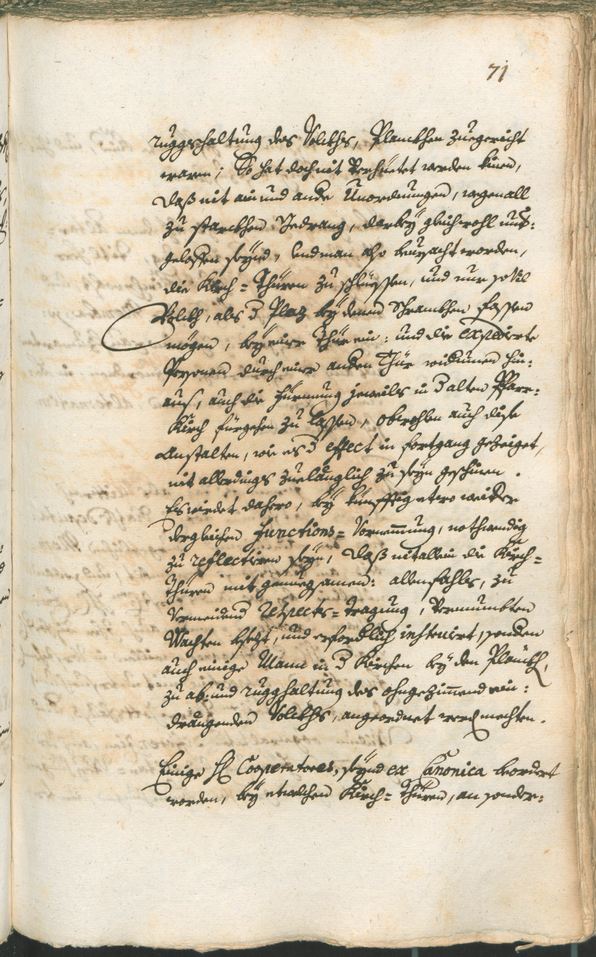 71
ruggshaltung des Volckhs, Planckhen zuegericht
waren; So hat doch nit verhüetet werden könen,
daß nit ain und andre Unordnungen, wegen all
zu starckhen Gedrang, darbey gleichwohl und:
geloffen seynd, und man also bewacht worden,
die Kirch=Thüren zu schliessen, und nur so vil
Volckh, als d Plaz bey denen Schranckhen fassen
mögen, bey einer Thür ein: und die expedierte
Persohnen durch eine andere Thür widrumen hin:
aus, auch die Firmung jeweils in d alten Pfarr:
Kirch fürgehen zu lassen, obwohlen auch dise
Anstalten, wie es d effect in fortgang gezeiget,
nit allerdings zuelänglich zu seyn geschinen.
Es wirdet dahero, bey künfftig etwo weider
dergleichen functions=Vornemmung, nothwendig
zu reflectiren seyn, daß nit allein die Kirch=
Thüren mit genuegsamen: allenfahls, zu
Vermeidung respects=tragung, vermumbten
Wachten besezt, und erfordlich instruirt, sonder
auch einige Mann in d Kirchen bey den Planckh,
zu ab: und rugghaltung des ohngezimmend ein:
dringenden Volckhs, angeordnet werd mechten.
Einige H Cooperatores, seynd ex Canonica beordert
worden, bey etwelchen Kirch=Thüren, an sonder: